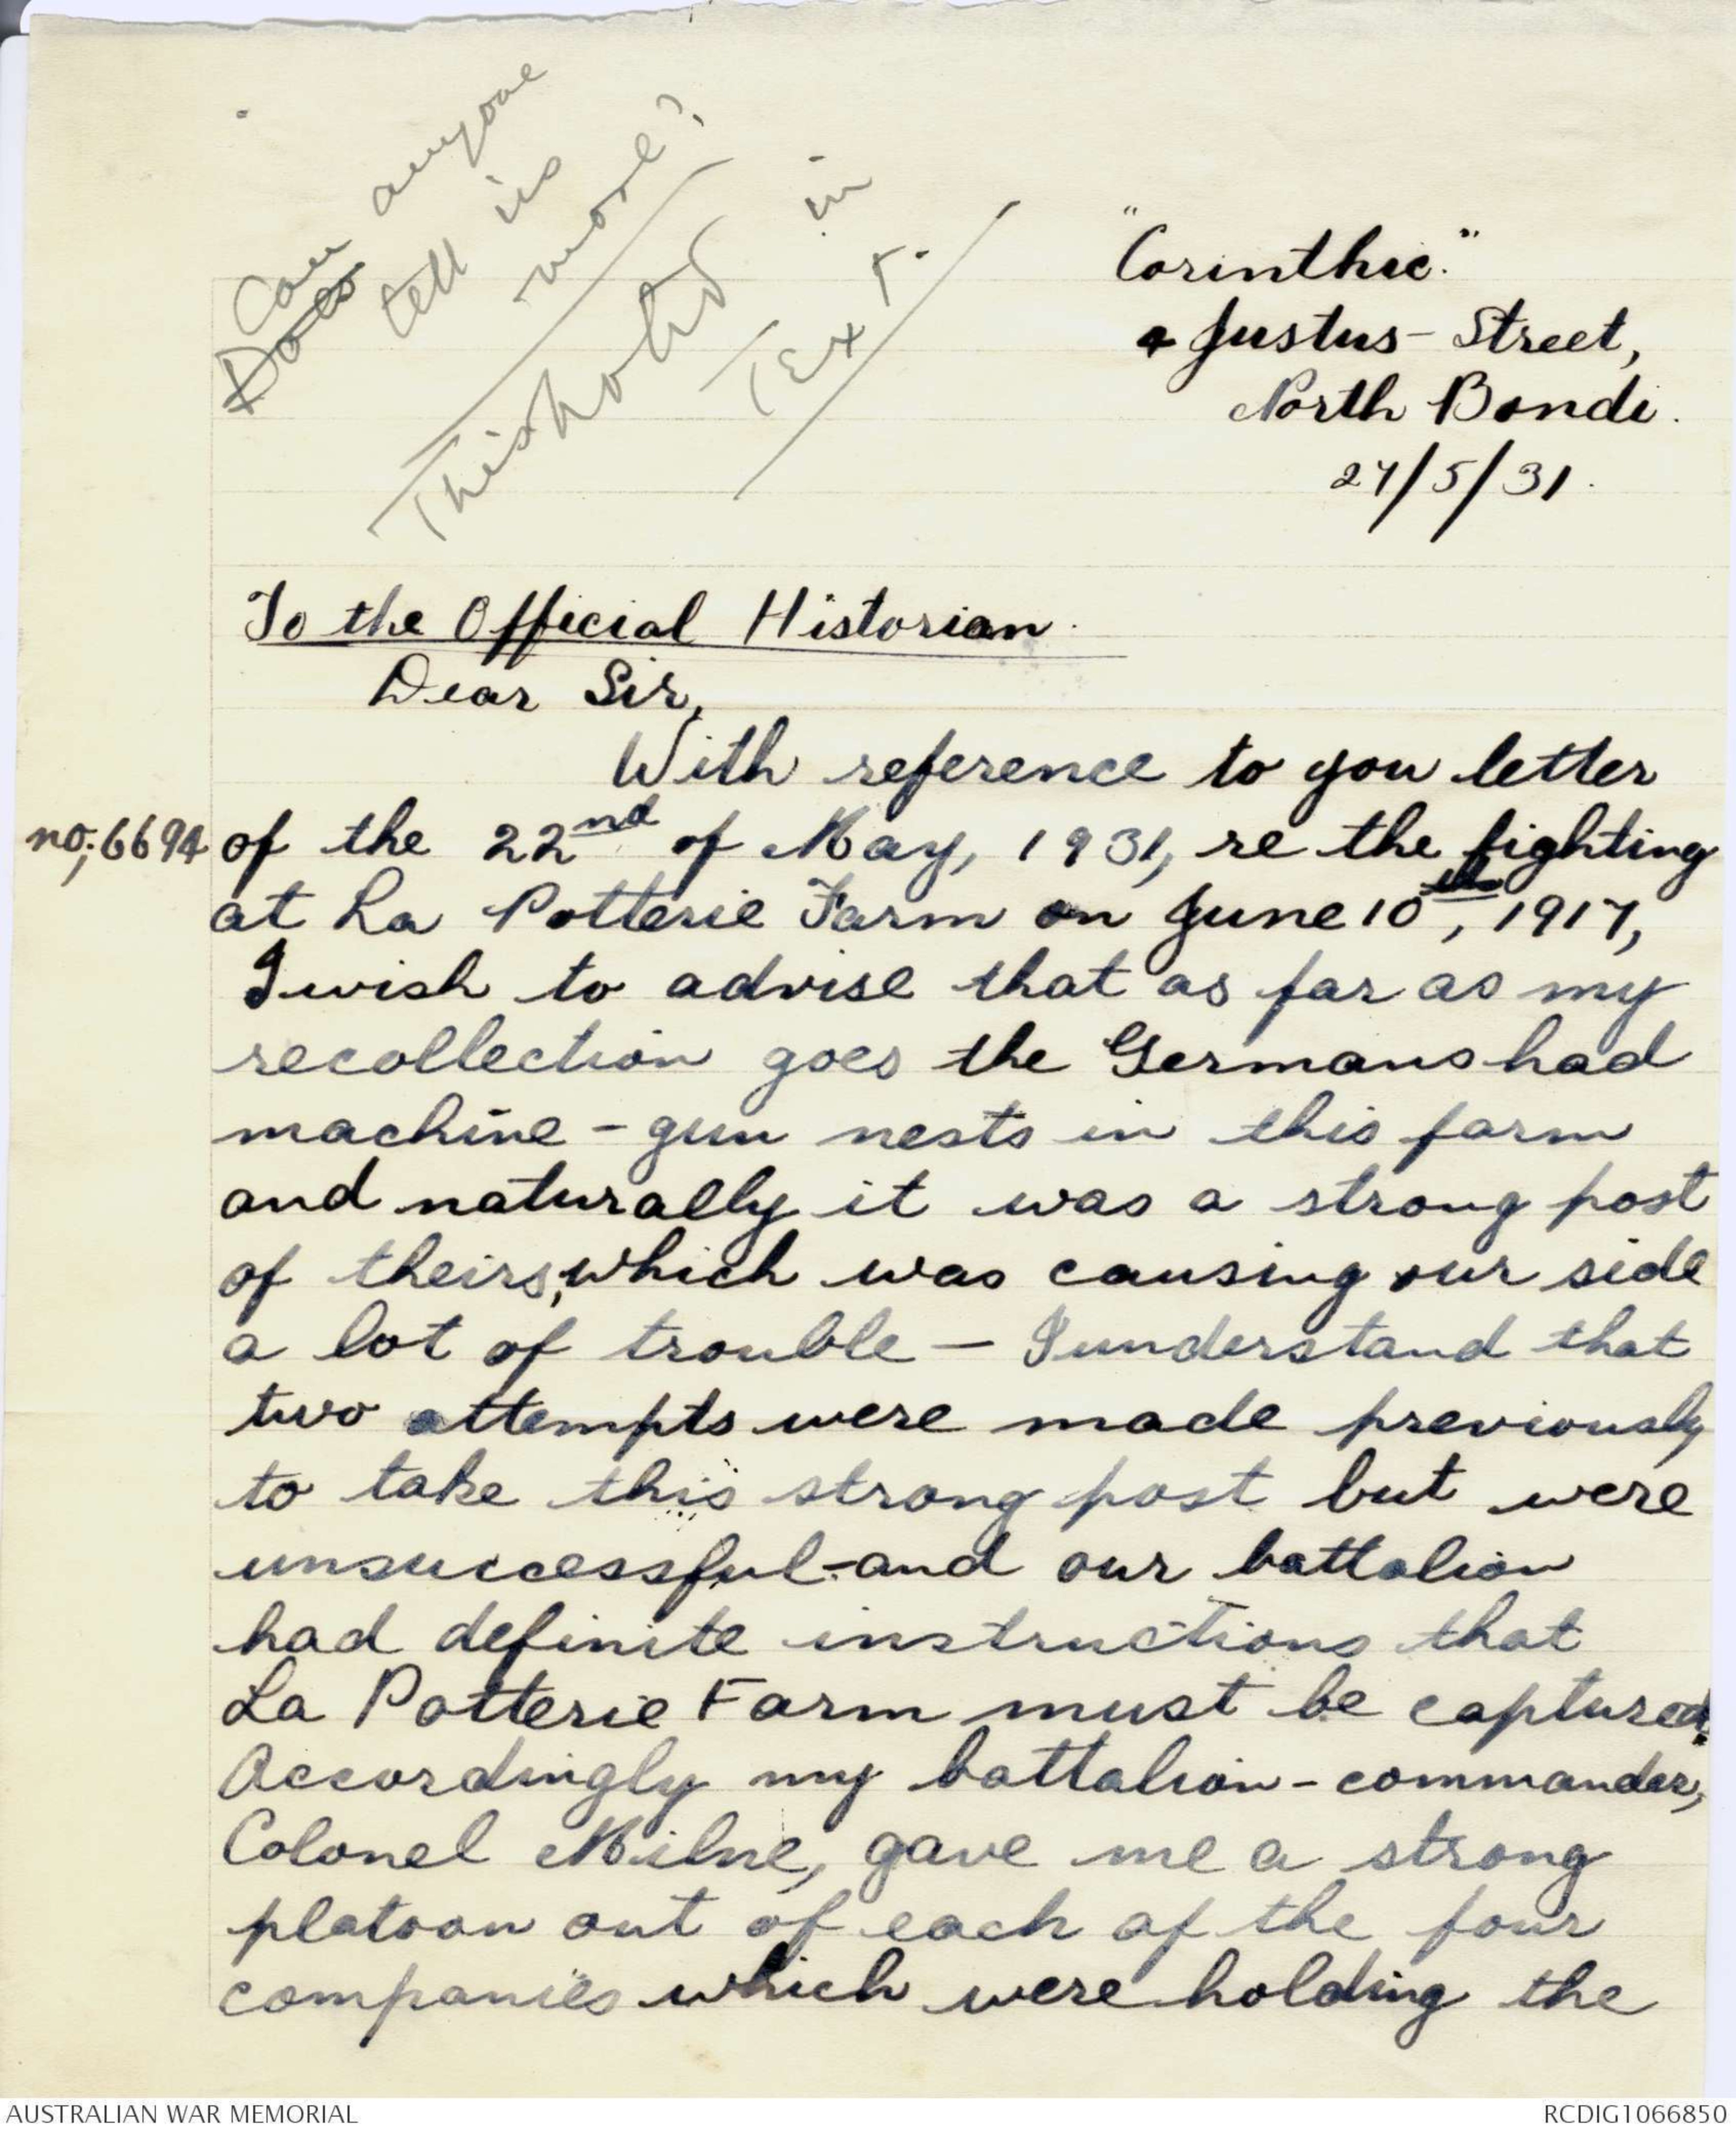 Can anyone
Does tell us
more?
This hold in
Text.
"Corinthic."
4 Justus - Street,
North Bondi.
27/5/31.
To the Official Historian.
Dear Sir,
With reference to you letter
no; 6694 of the 22nd of May, 1931, re the fighting
at La Potterie Farm on June 10th, 1917,
I wish to advise that as far as my
recollection goes the Germans had
machine-gun nests in this farm
and naturally it was a strong post
of theirs, which was causing our side
a lot of trouble — I understand that
two attempts were made previously
to take this strong post but were
unsuccessful - and our battalion
had definite instructions that
La Potterie Farm must be captured.
Accordingly my battalion - commander,
Colonel Milne, gave me a strong
platoon out of each of the four
companies which were holding the
AUSTRALIAN WAR MEMORIAL
RCDIG1066850